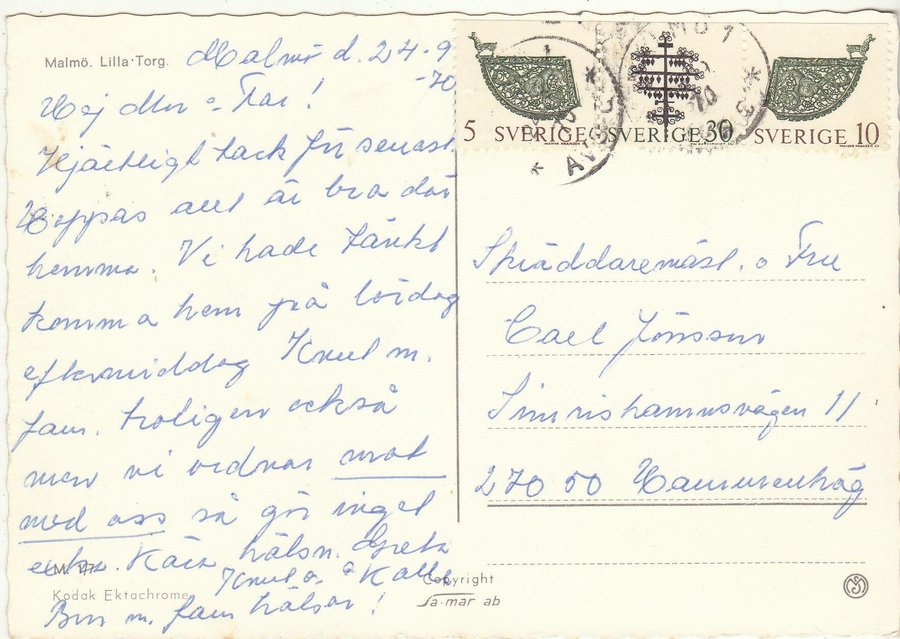 Malmö. Lilla Torg.
Malmö d. 24-9
-70
Hej Mor o Far!
Hjärtligt tack för senast
Hoppas allt är bra där
hemma. Vi hade tänkt
komma hem på lördag
eftermiddag Knut m.
fam. troligen också
men vi ordnar mat
med oss så gör inget
extra. Kära hälsn. Greta
Knut o Kalle
Bm m. fam hälsar!
M. 177
Kodak Ektachrome
Copyright
sa-mar ab
5 SVERIGE
SVERIGE 30
SVERIGE 10
MALMÖ 1
AVG
70
Skräddaremäst. o Fru
Carl Jönsson
Simrishamnsvägen 11
270 50 Hammenhög